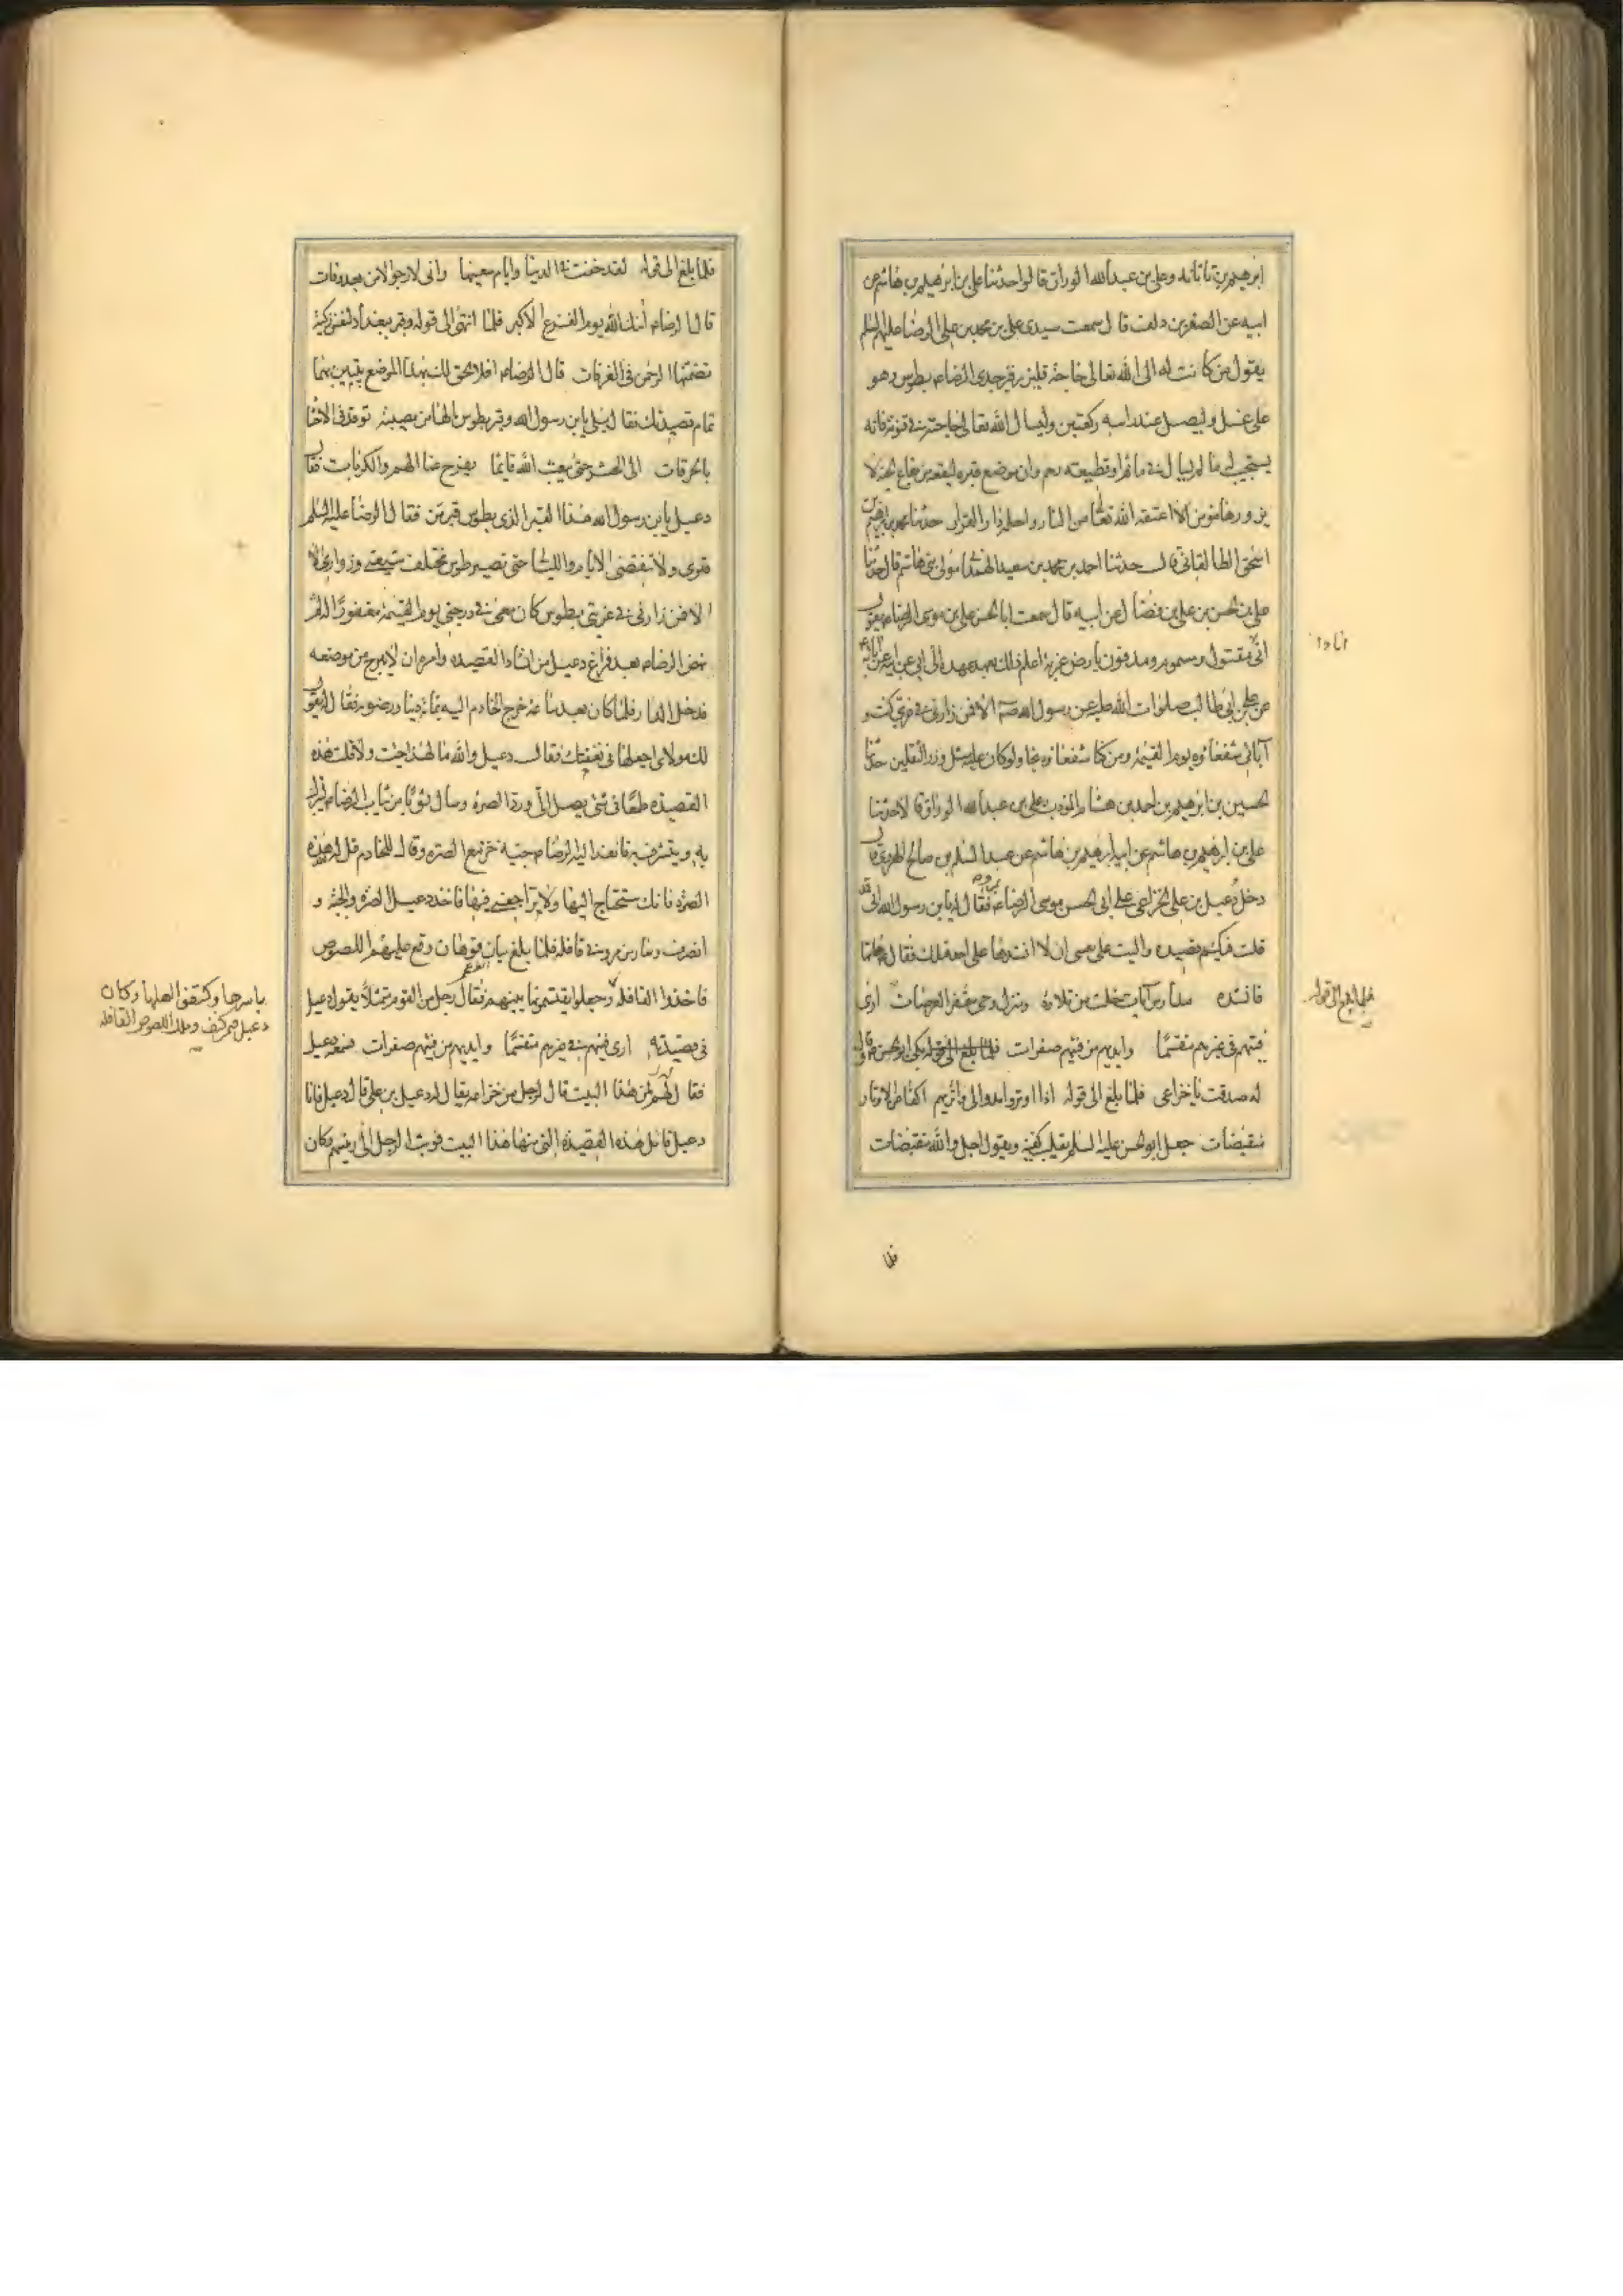 ابرهيم بن تاتانه وعلى بن عبدالله الوراق قالوا حدثنا على بن ابرهيم بن هاشم عن
ابيه عن الصقر بن دلف قال سمعت سيدى على بن محمد بن على الرضا عليهم السلم
يقول من كانت له الى الله تعالى حاجة فليزر قبر جدى الرضا ع بطوس وهو
على غسل وليصل عند راسه ركعتين وليسال الله تعالى حاجته فى قنوته فانه
يستجيب له ما لم يسال فى ماثم او قطيعة رحم وان موضع قبره لبقعة من بقاع الجنة لا
يزورها مومن الا اعتقه الله تعالى من النار واحله دار القرار حدثنا محمد بن ابرهيم بن
اسحق الطالقانى قال حدثنا احمد بن محمد بن سعيد الهمدانى مولى بنى هاشم قال حدثنا
على بن الحسن بن على بن فضال عن ابيه قال سمعت ابا الحسن على بن موسى الرضا ع يقول
انى مقتول ومسموم ومدفون بارض غربة اعلم ذلك بعهد عهده الى ابى عن ابيه عن آبائه
عن على بن ابى طالب صلوات الله عليه عن رسول الله ص الا فمن زارنى فى غربتى كنت و
انا و
آبائى شفعاؤه يوم القيمة ومن كنا شفعاؤه نجا ولو كان عليه مثل وزر الثقلين حدثنا
الحسين بن ابرهيم بن احمد بن هشام المؤدب وعلى بن عبدالله الوراق قالا حدثنا
على بن ابرهيم بن هاشم عن ابيه ابرهيم بن هاشم عن عبد السلم بن صالح الهروى قال
دخل دعبل بن على الخزاعى على ابى الحسن موسى الرضا ع بمرو فقال له يابن رسول الله انى قد
قلت فيكم قصيدة واليت على نفسى ان لا انشدها على احد قبلك فقال ع هاتها
فانشده مدارس آيات خلت من تلاوة ومنزل وحى مقفر العرصات ارى
فلما بلغ الى قوله
فيئهم فى غيرهم متقسما وايديهم من فيئهم صفرات فلما بلغ الى قوله بكى ابو الحسن ع وقال
له صدقت يا خزاعى فلما بلغ الى قوله اذا اوتروا مدوا الى واتريهم اكفا عن الاوتار
منقبضات جعل ابو الحسن عليه السلم يقلب كفيه ويقول اجل والله منقبضات
فلما
فلما بلغ الى قوله لقد خفت فى الدنيا وايام سعيها وانى لارجو الامن بعد وفاتى
قال الرضا ع آمنك الله يوم الفزع الاكبر فلما انتهى الى قوله وقبر ببغداد لنفس زكية
تضمنها الرحمن فى الغرفات قال الرضا ع افلا الحق لك بهذا الموضع بيتين بهما
تمام قصيدتك فقال بلى يابن رسول الله وقبر بطوس يا لها من مصيبة توقد فى الاحشا
بالحرقات الى الحشر حتى يبعث الله قائما يفرج عنا الهم والكربات فقال
دعبل يابن رسول الله هذا القبر الذى بطوس قبر من فقال الرضا عليه السلم
قبرى ولا تنقضى الايام والليالى حتى تصير طوس مختلف شيعتى وزوارى الا
الا فمن زارنى فى غربتى بطوس كان معى فى درجتى يوم القيمة مغفورا له ثم
نهض الرضا ع بعد فراغ دعبل من انشاد القصيدة وامره ان لا يبرح من موضعه
فدخل الدار فلما كان بعد ساعة خرج الخادم اليه بمائة دينار رضوية فقال له يقول
لك مولاى اجعلها فى نفقتك فقال دعبل والله ما لهذا جئت ولا قلت هذه
القصيدة طمعا فى شئ يصل الى ورد الصرة وسال ثوبا من ثياب الرضا ع ليتبرك
به ويتشرف به فانفذ اليه الرضا ع جبة خز مع الصرة وقال للخادم قل له خذ هذه
الصرة فانك ستحتاج اليها ولا تراجعنى فيها فاخذ دعبل الصرة والجبة و
انصرف وسار من مرو فى قافلة فلما بلغ ميان قوهان وقع عليهم اللصوص
فاخذوا القافلة وجعلوا يقتسمونها بينهم فقال رجل من القوم متمثلا بقول دعبل
باسرها وكتفوا اهلها وكان
دعبل فيمن كتف وملك اللصوص القافلة
فى قصيدته ارى فيئهم فى غيرهم متقسما وايديهم من فيئهم صفرات فسمعه دعبل
فقال لهم لمن هذا البيت قال لرجل من خزاعة يقال له دعبل بن على قال دعبل فانا
دعبل قائل هذه القصيدة التى منها هذا البيت فوثب الرجل الى رئيسهم وكان